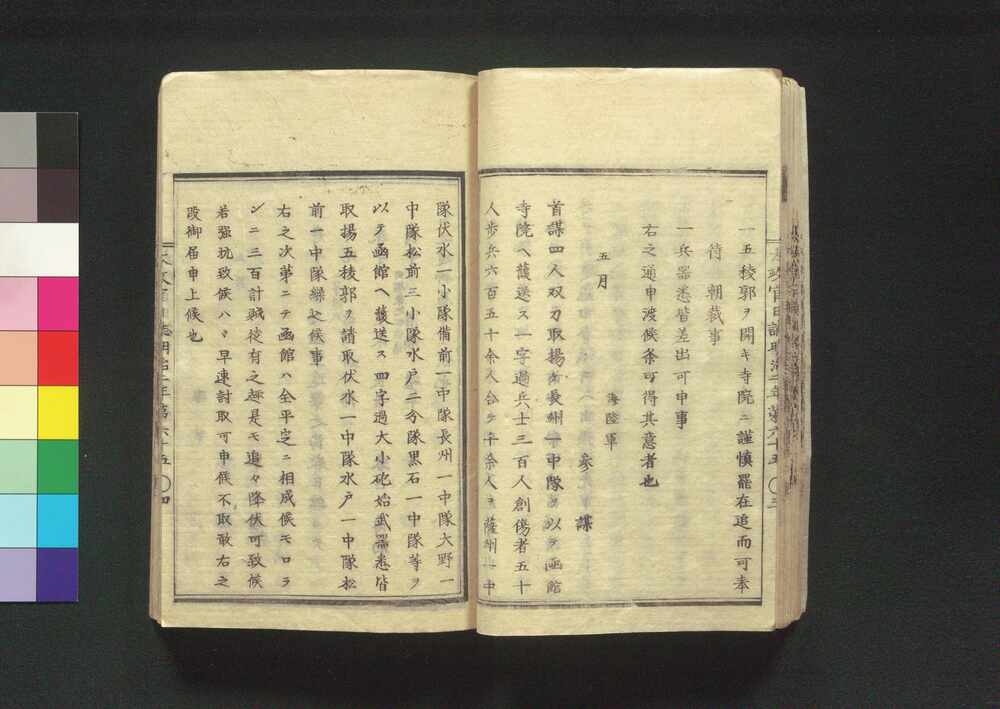 一五稜郭ヲ開キ寺院ニ謹慎罷在追而可奉
待　朝裁事
一兵器悉皆差出可申事
右之通申渡候条可得其意者也
五月
海陸軍
参謀
首謀四人双刀取揚ケ長州一中隊ヲ以テ函館
寺院ヘ護送ス一字過兵士三百人創傷者五十
人歩兵六百五十余人合テ千余人ヲ薩州一中
隊伏水一小隊備前一中隊長州一中隊大野一
中隊松前三小隊水戸二分隊黒石一中隊等ヲ
以テ函館ヘ護送ス四字過大小砲始武器悉皆
取揚五稜郭ヲ請取伏水一中隊水戸一中隊松
前一中隊繰込候事
右之次第ニテ函館ハ全平定ニ相成候モロラ
ンニ三百計賊徒有之趣是モ追々降伏可致候
若強抗致候ハヽ早速討取可申候不取敢右之
段御届申上候也
太政官日誌明治二年第六十五　四